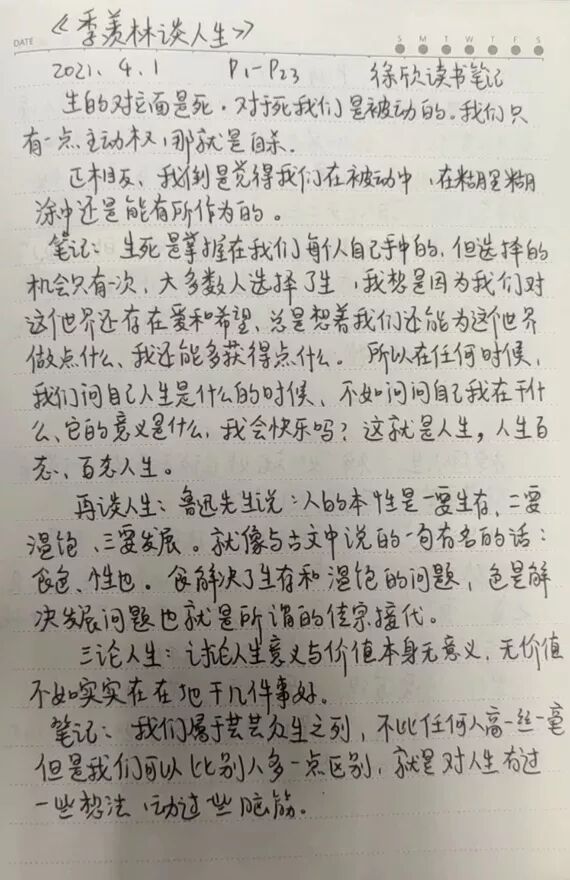 《季羡林谈人生》
DATE
S M T W T F S
2021. 4. 1 P1-P23 徐欣读书笔记
生的对立面是死，对于死我们是被动的。我们只
有一点主动权，那就是自杀.
正相反、我倒是觉得我们在被动中，在糊里糊
涂中还是能有所作为的。
笔记：生死是掌握在我们每个人自己手中的，但选择的
机会只有一次，大多数人选择了生，我想是因为我们对
这个世界还存在爱和希望、总是想着我们还能为这个世界
做点什么、我还能多获得点什么。所以在任何时候，
我们问自己人生是什么的时候、不如问问自己我在干什
么、它的意义是什么，我会快乐吗？这就是人生，人生百
态、百态人生。
再谈人生：鲁迅先生说：人的本性是一要生存，二要
温饱、三要发展。就像与古文中说的一句有名的话：
食色、性也。食解决了生存和温饱的问题，色是解
决发展问题也就是所谓的传宗接代。
三论人生：讨论人生意义与价值本身无意义，无价值
不如实实在在地干几件事好。
笔记：我们属于芸芸众生之列，不比任何人高一丝一毫
但是我们可以比别人多一点区别，就是对人生有过
一些想法，动过一些脑筋。